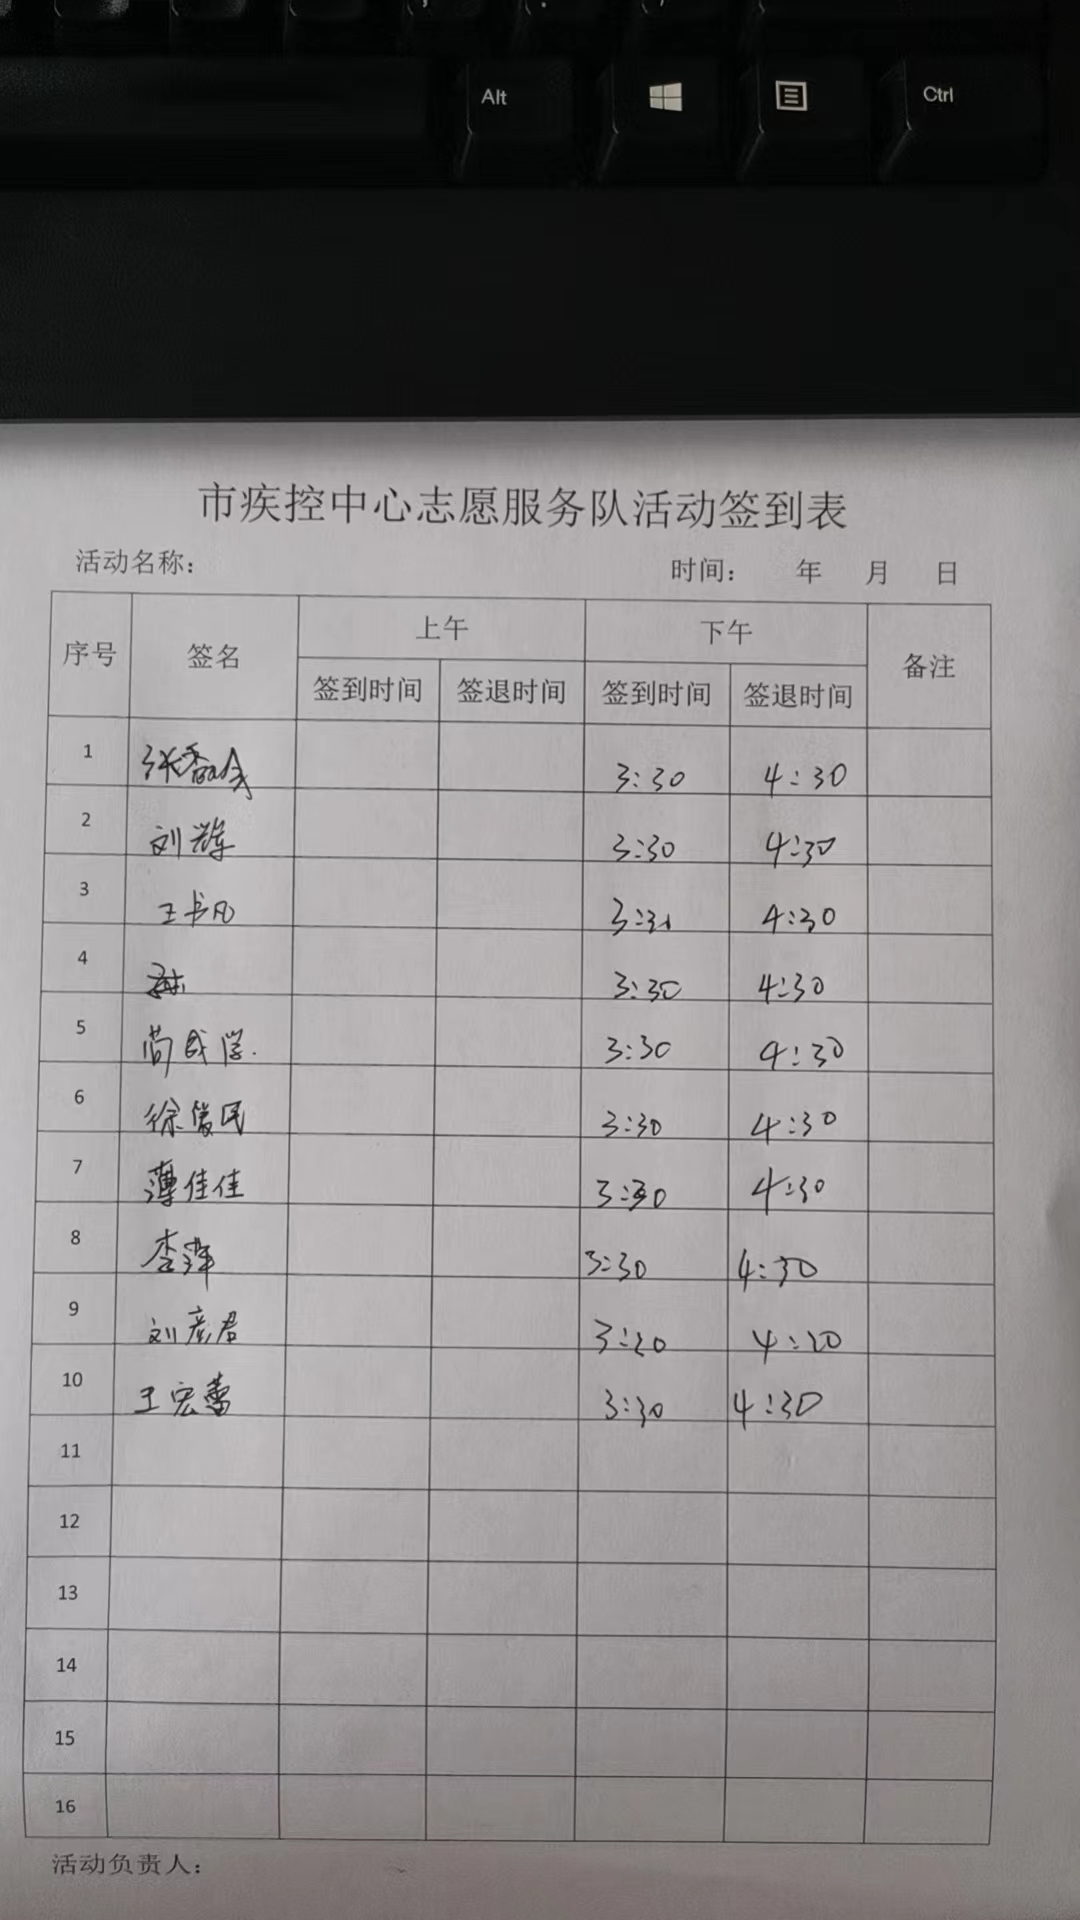 Alt
Ctrl
市疾控中心志愿服务队活动签到表
活动名称: 时间: 年 月 日
序号 签名 上午 下午 备注
签到时间 签退时间 签到时间 签退时间
1 3:30 4:30
2 刘辉 3:30 4:30
3 王书凡 3:31 4:30
4 3:30 4:30
5 3:30 4:30
6 徐俊民 3:30 4:30
7 薄佳佳 3:30 4:30
8 李萍 3:30 4:30
9 刘彦君 3:20 4:20
10 王宏蕾 3:30 4:30
11
12
13
14
15
16
活动负责人: